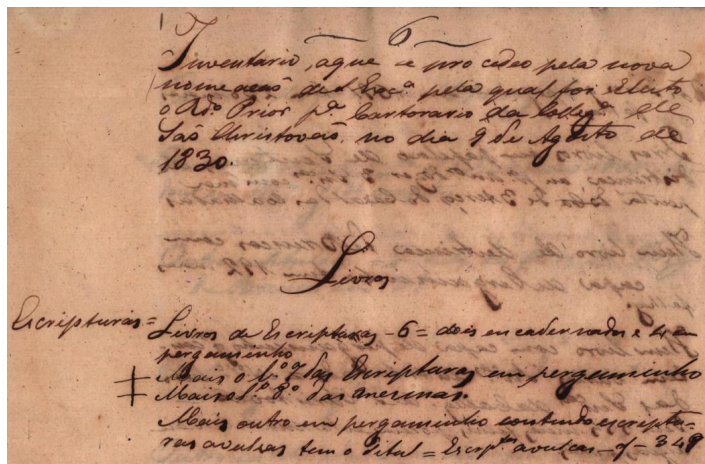 6
Inventario, aque se procedeo pela nova
nomeacaõ de S. Exc.ª pela qual foi Eleito
o R.do Prior p.ª Cartorario da Colleg.ª de
Saõ Christovaõ no dia 9 de Agosto de
1830.
Livros
Escripturas =
Livros de Escripturas - 6 = dois encadernados e 4 em
pergaminho
Mais o L.º 7º das Escripturas em pergaminho
Mais o L.º 8º das mesmas.
Mais outro em pergaminho contendo escriptu-
ras avulsas tem o titul = Escrp.tas avulças - 7 - 349